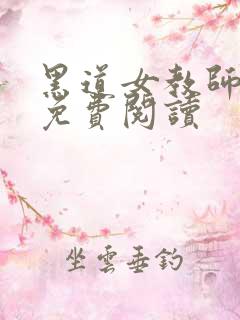 黑道女教師
免費閱讀
坐雲垂釣